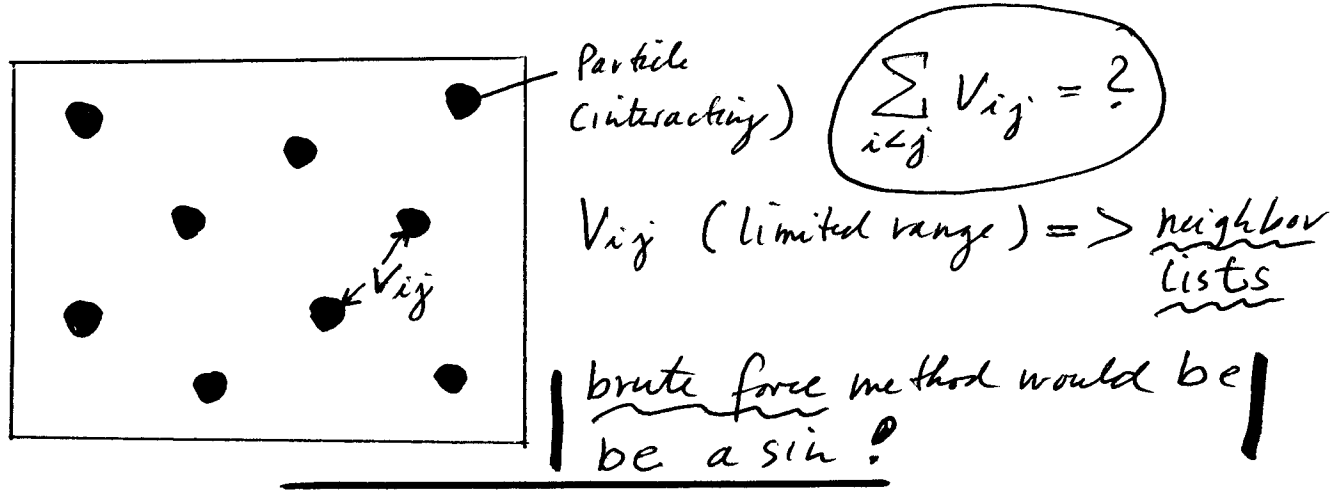 Particle
(interacting)
∑ Vij = ?
i<j
Vij (limited range) => neighbor
lists
Vij
brute force method would be
be a sin !